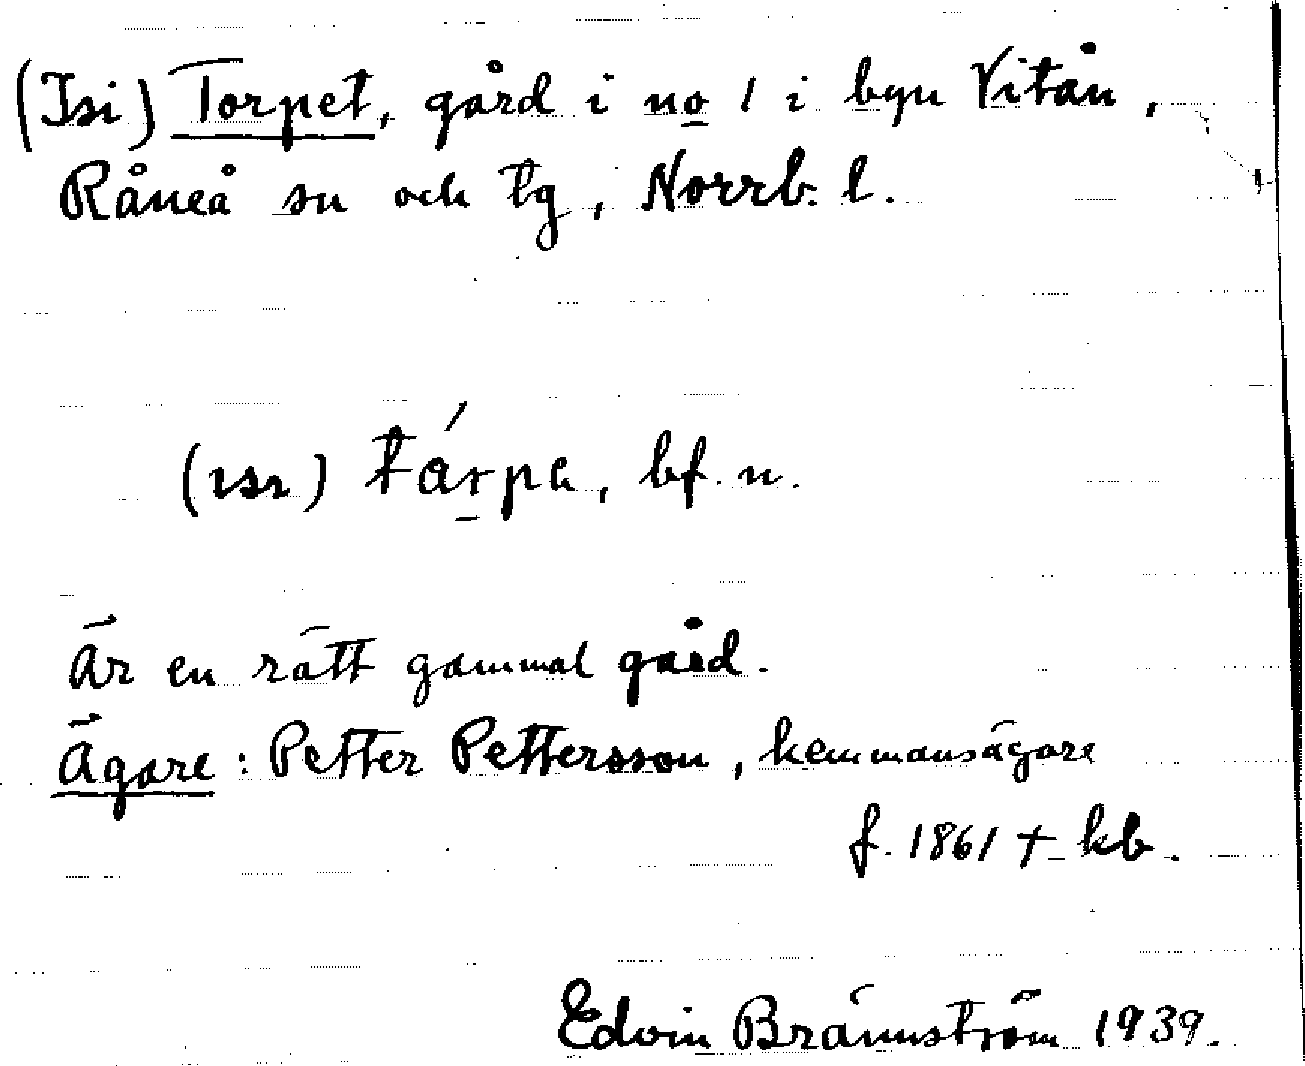 (Isi) Torpet, gård i no 1 i byn Vitån,
Råneå sn och tg, Norrb. l.
(ısı) tárpa, bf. n.
Är en rätt gammal gård.
Ägare: Petter Pettersson, hemmansägare
f. 1861 + kb.
Edvin Brännström 1939.